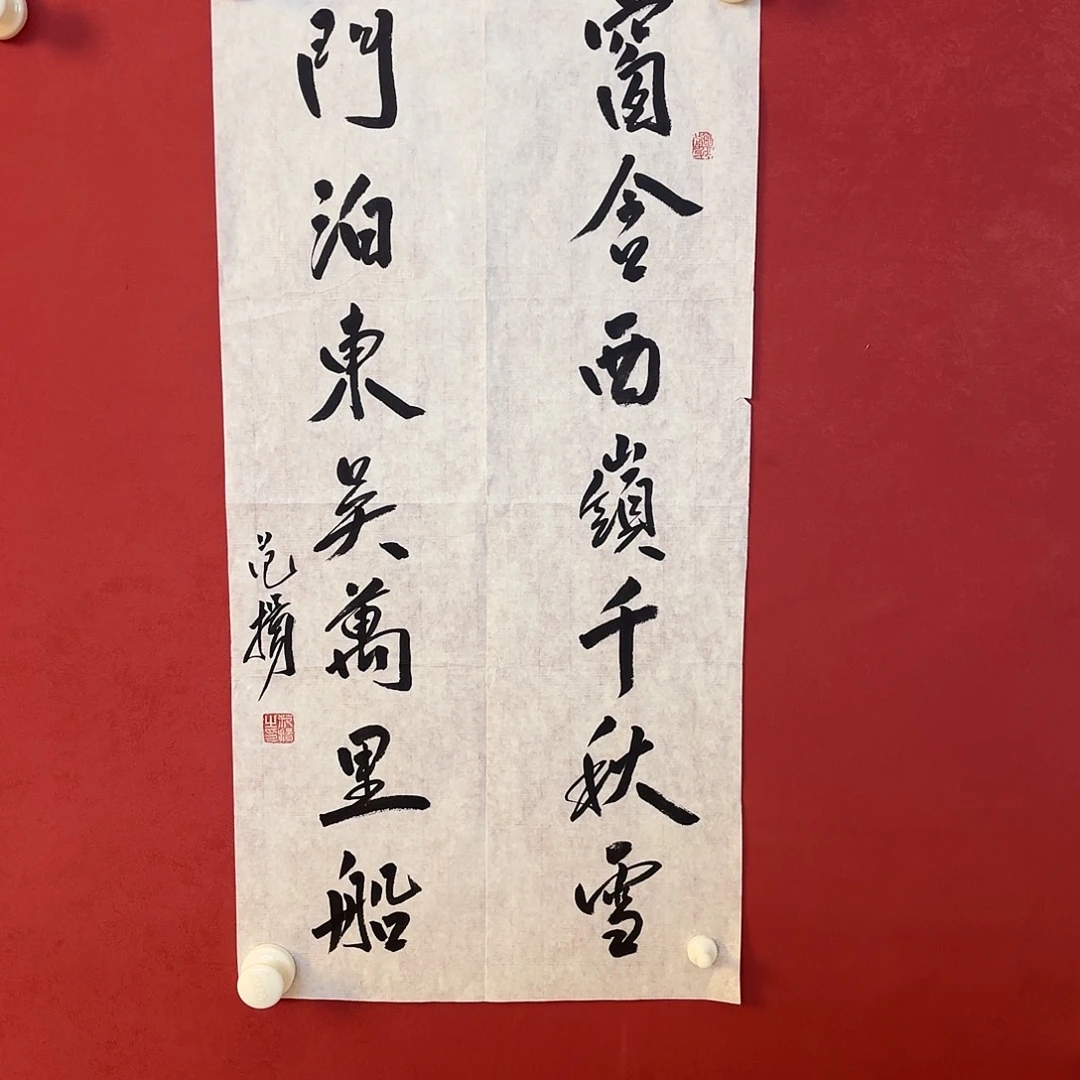 窗含西嶺千秋雪
門泊東吳萬里船
范